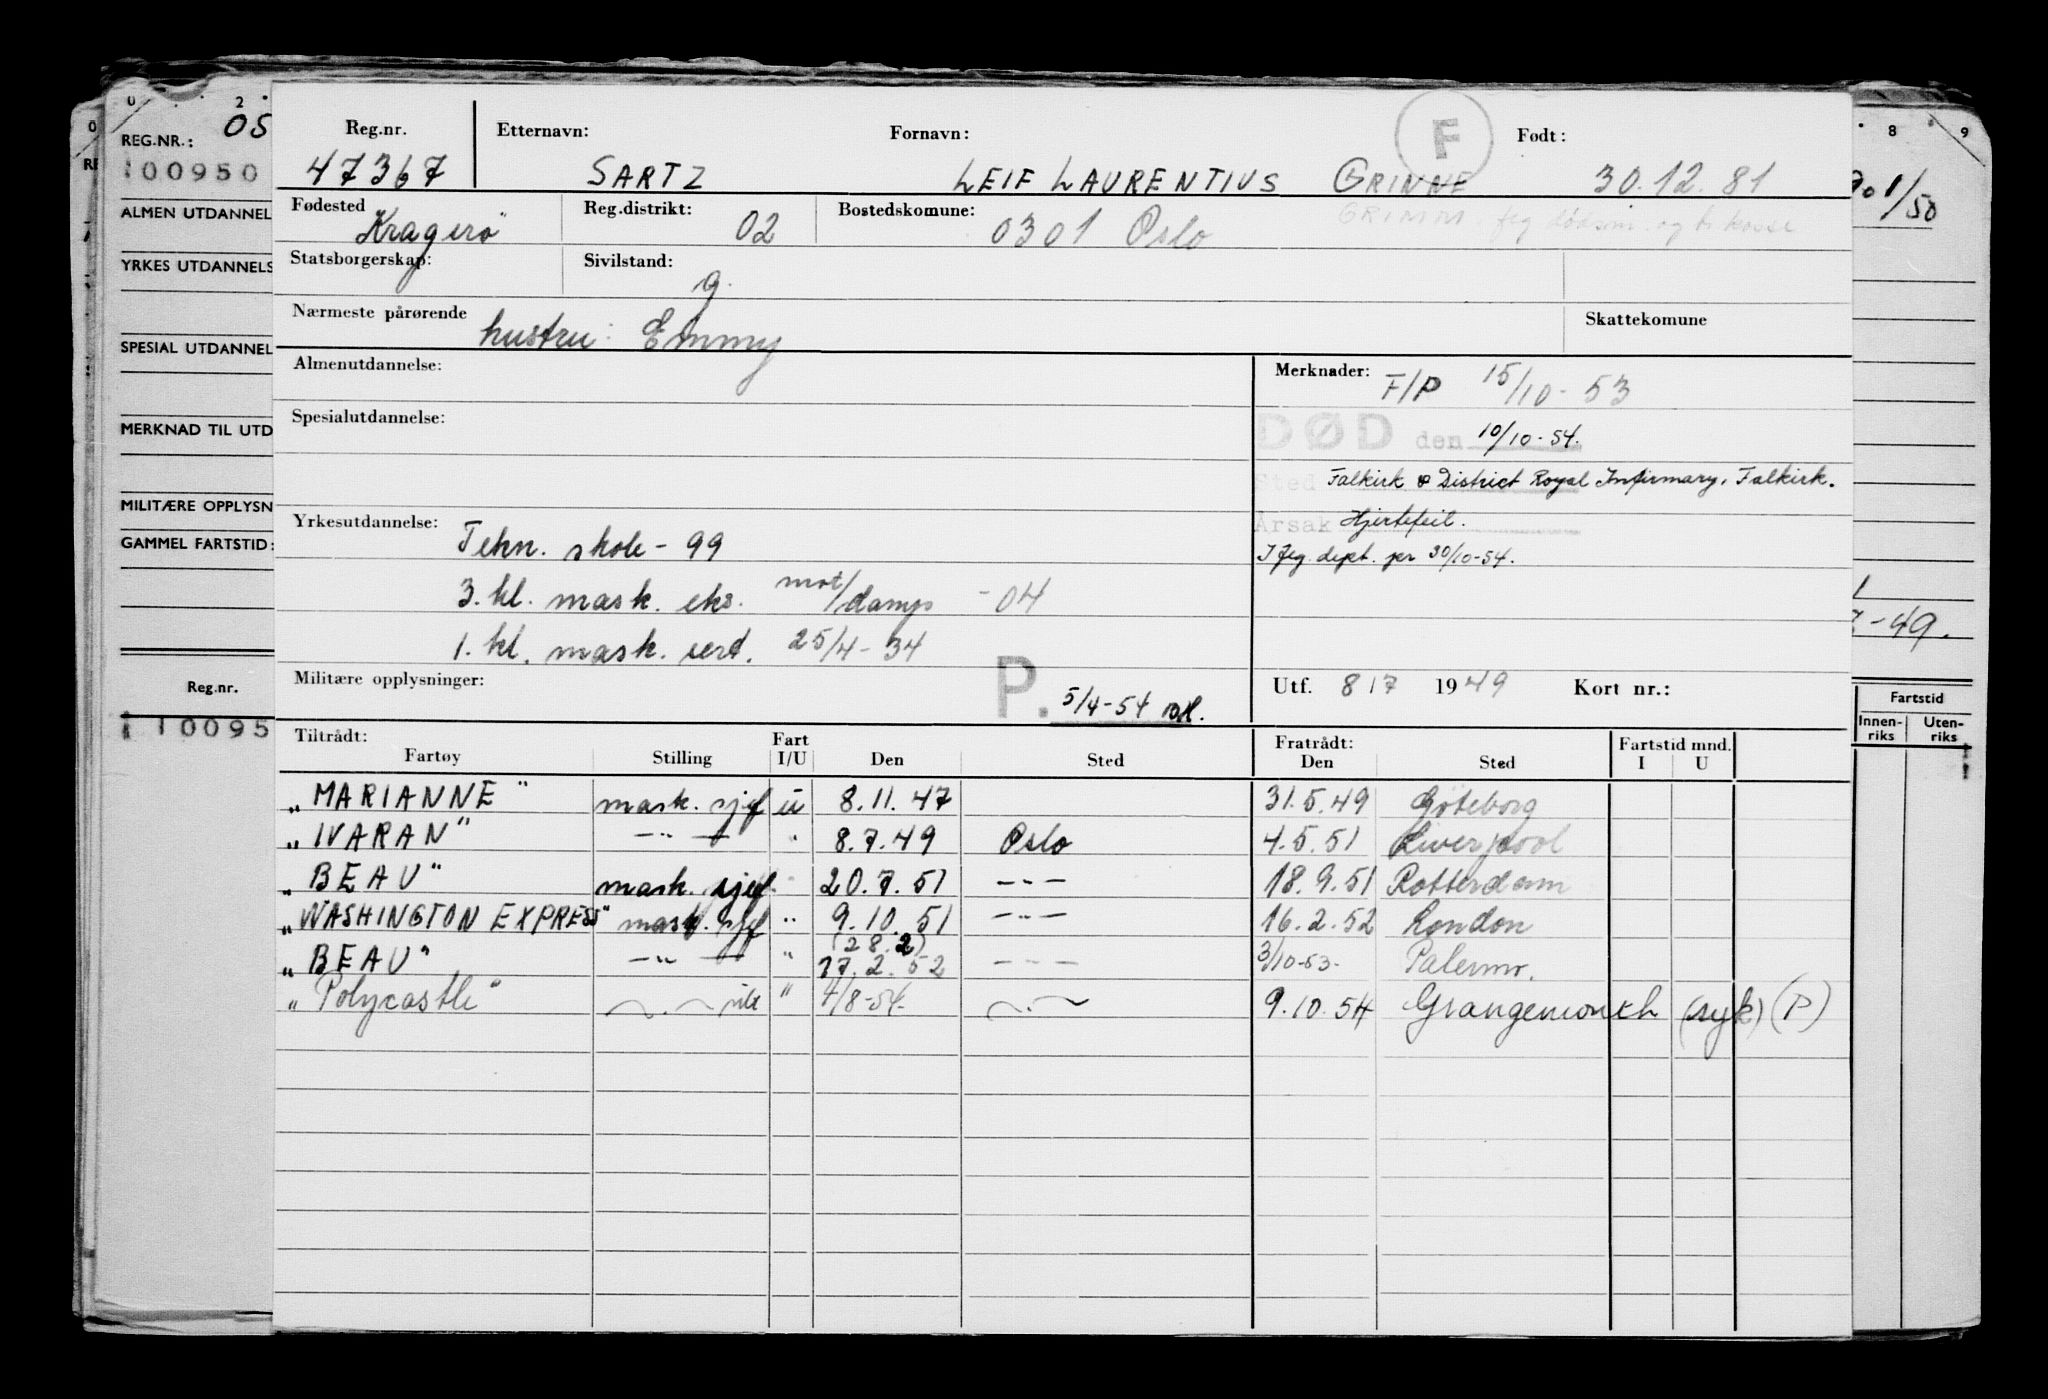 0 2 8 9
REG.NR.: 05
100950
ALMEN UTDANNEL
YRKES UTDANNELS
SPESIAL UTDANNEL
MERKNAD TIL UTD
MILITÆRE OPPLYSN
GAMMEL FARTSTID:
Reg.nr.
110095
1/50
-49.
Fartstid
Innen-riks Uten-riks
Reg.nr. Etternavn: Fornavn: F Født:
47367 SARTZ LEIF LAURENTIUS GRINNE 30.12.81
Fødested Reg.distrikt: Bostedskomune:
Kragerö 02 0301 Oslo GRIMM
Statsborgerskap: Sivilstand: g.
Nærmeste pårørende hustru: Emmy Skattekomune
Almenutdannelse: Merknader: F/P 15/10-53
Spesialutdannelse: DØD den 10/10-54.
Sted Falkirk & District Royal Infirmary, Falkirk.
Yrkesutdannelse: Tekn. skole - 99 Årsak Hjertefeil.
I flg. dept. pr 30/10-54.
3. kl. mask. eks. mot/damp - 04
1. kl. mask. sert. 25/4-34
Militære opplysninger: P. 5/4-54 Utf. 8/7 1949 Kort nr.:
Tiltrådt: Fart Fratrådt: Fartstid mnd.
Fartøy Stilling I/U Den Sted Den Sted I U
"MARIANNE" mask. sjef u 8.11.47 31.5.49 Göteborg
"IVARAN" —"— " 8.7.49 Oslo 4.5.51 Liverpool
"BEAU" mask. sjef " 20.7.51 —"— 18.9.51 Rotterdam
"WASHINGTON EXPRESS" mask. sjef " 9.10.51 —"— 16.2.52 London
(28.2)
"BEAU" —"— " 17.2.52 —"— 3/10-53- Palermo.
"Polycastle" —"— " 4/8-54- —"— 9.10.54 Grangemouth (syk) (P)